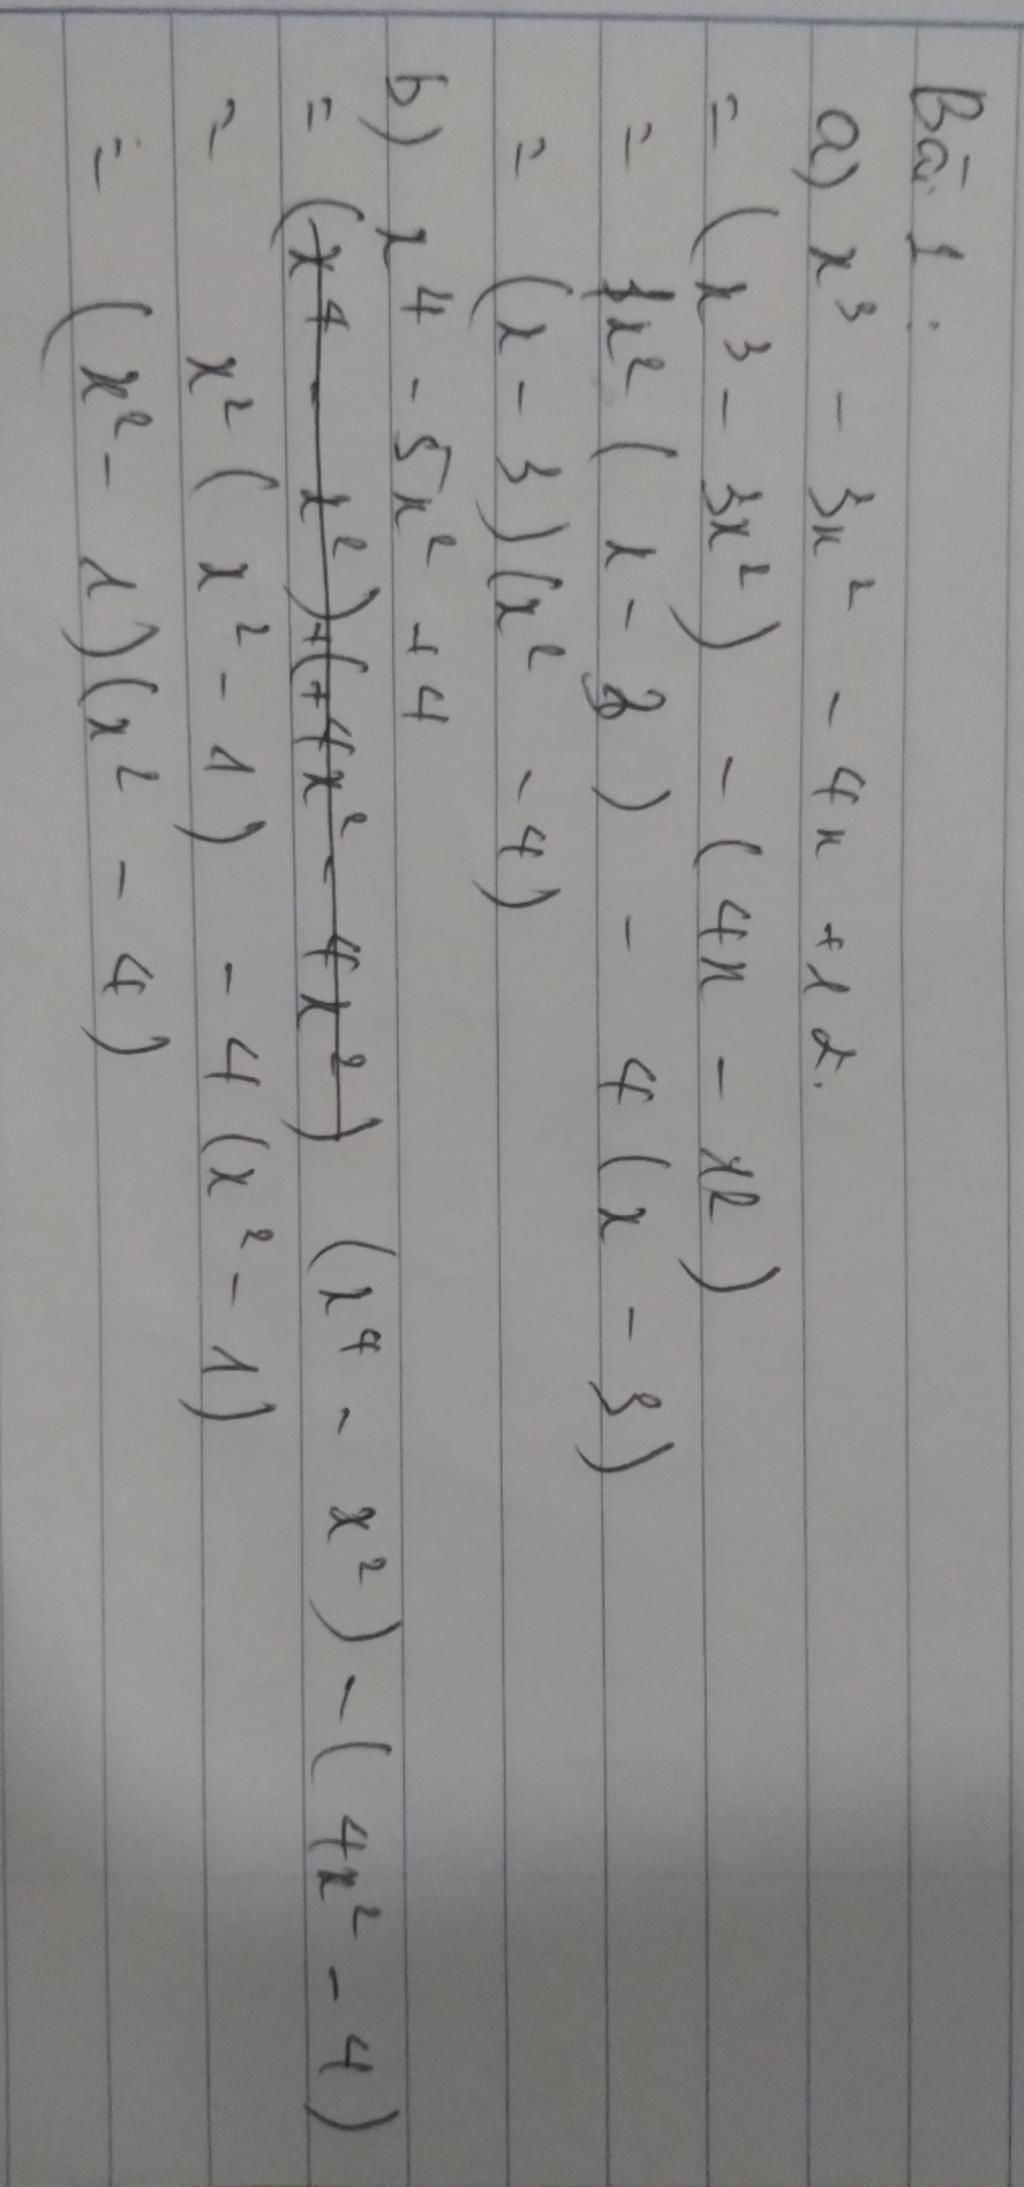 Bài 1:
a) x³ - 3x² - 4x + 12.
= (x³ - 3x²) - (4x - 12)
= x² (x - 3) - 4 (x - 3)
= (x - 3)(x² - 4)
b) x⁴ - 5x² + 4
= (x⁴ - x²) + (+4x² - 4x²) (x⁴ - x²) - (4x² - 4)
= x² (x² - 1) - 4 (x² - 1)
= (x² - 1)(x² - 4)